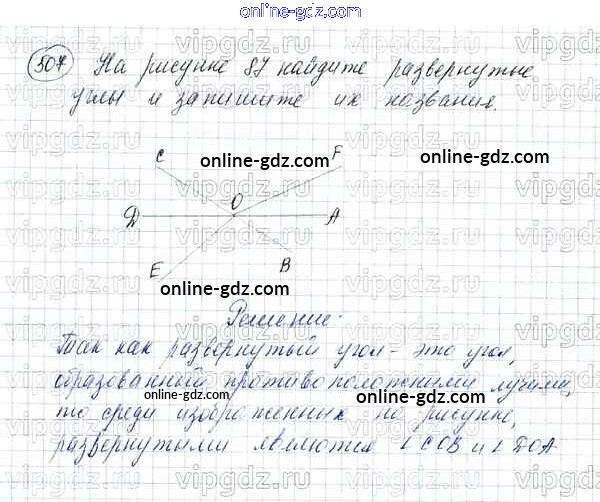 online-gdz.com
507 На рисунке 87 найдите развернутые
углы и запишите их названия.
C F
online-gdz.com online-gdz.com
O
D A
E B
online-gdz.com online-gdz.com
Решение.
Так как развернутый угол - это угол,
образованный противоположными лучами,
то среди изображенных на рисунке,
развернутыми являются ∠COB и ∠DOA
vipgdz.ru